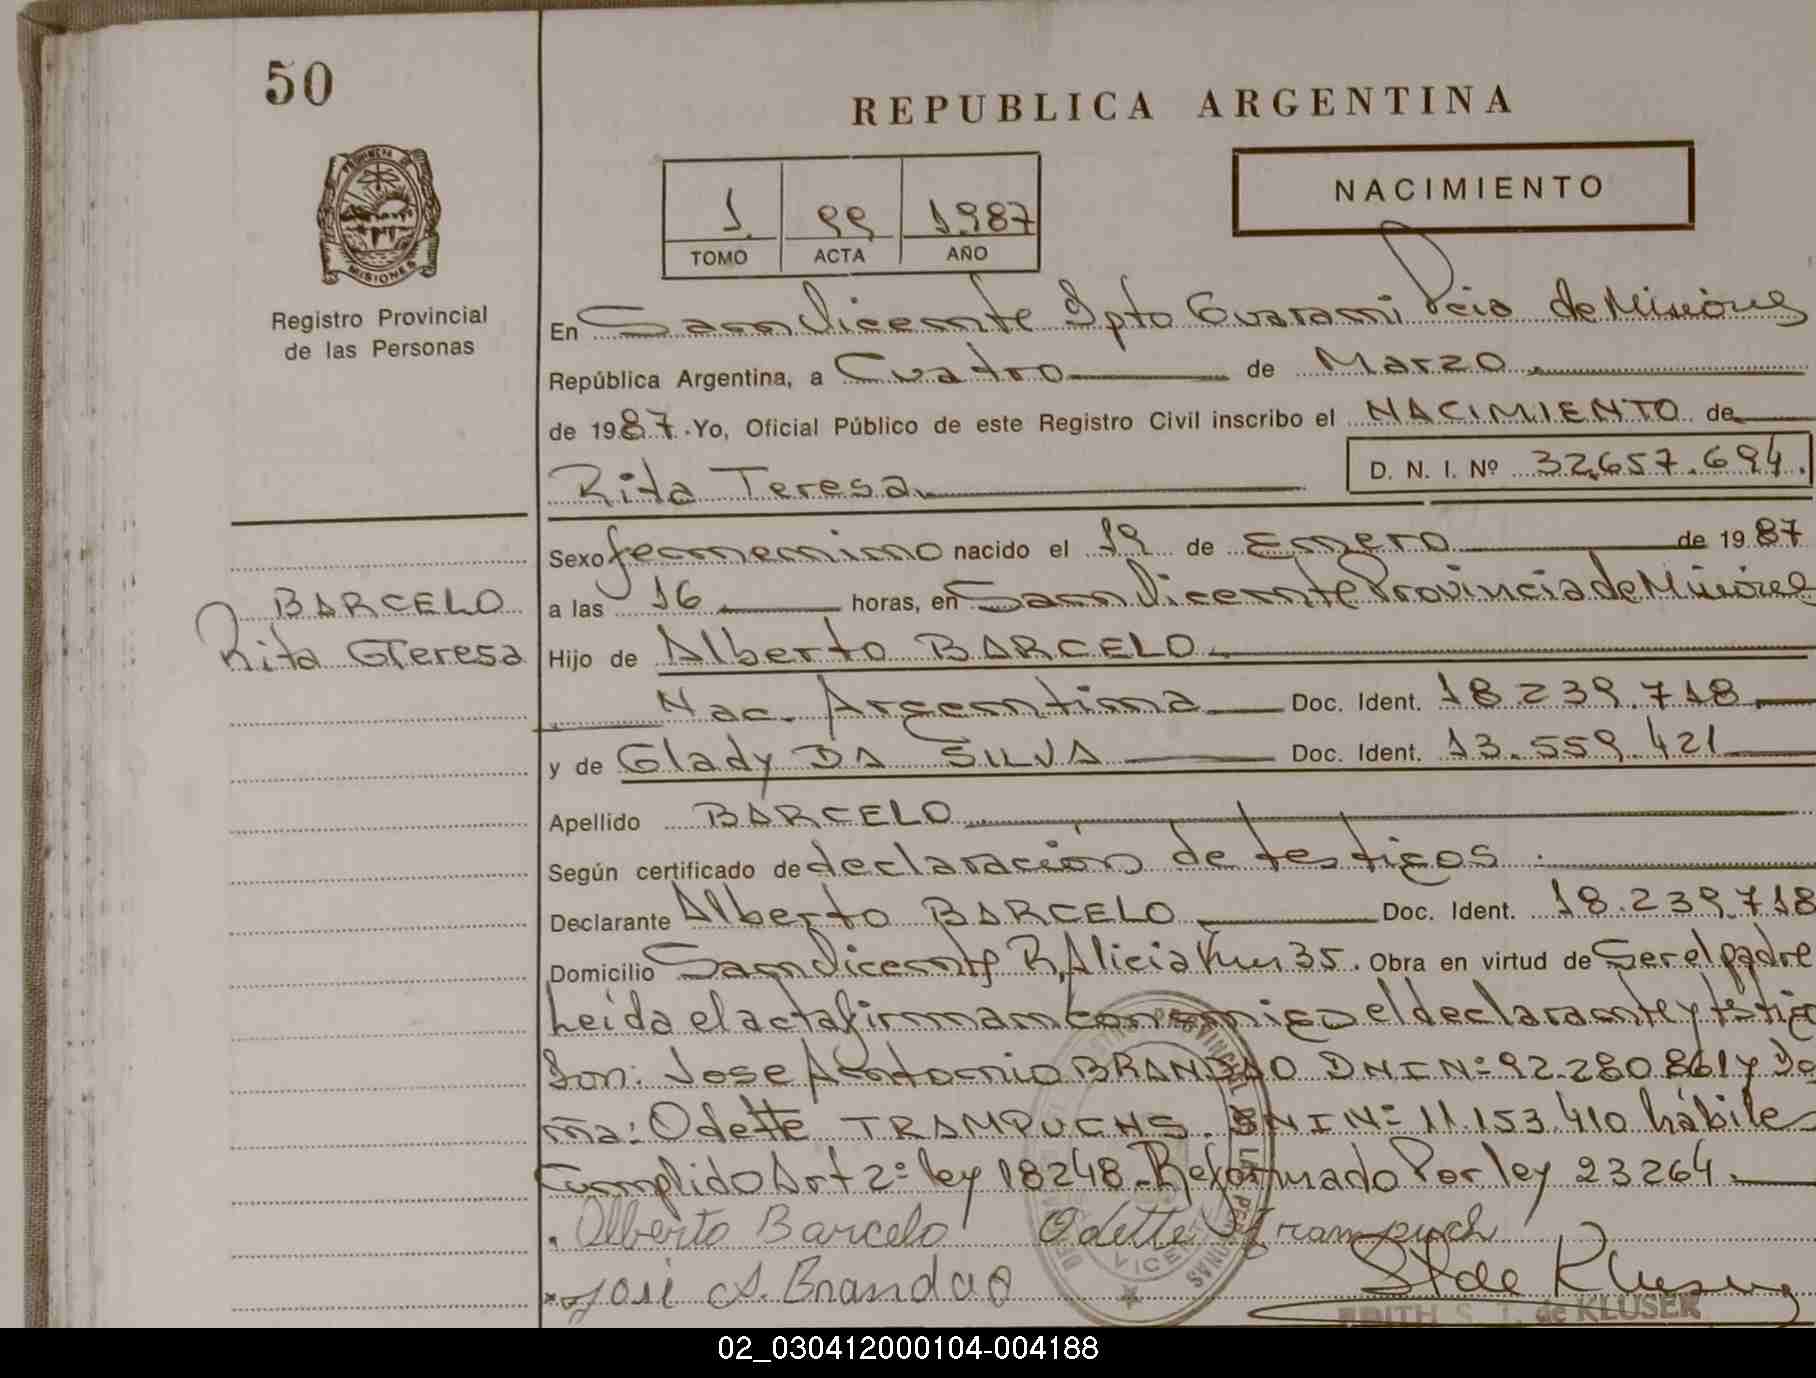 50
PROVINCIA DE
MISIONES
Registro Provincial
de las Personas
REPUBLICA ARGENTINA
NACIMIENTO
1 99 1987
TOMO ACTA AÑO
En San Vicente Dpto Guarani Pcia de Misiones
República Argentina, a Cuatro de Marzo
de 1987. Yo, Oficial Público de este Registro Civil inscribo el NACIMIENTO de
Rita Teresa D. N. I. Nº 32.657.694.
Sexo femenino nacido el 19 de Enero de 1987
a las 16 horas, en San Vicente Provincia de Misiones
BARCELO
Rita Teresa
Hijo de Alberto BARCELO.
Nac. Argentina Doc. Ident. 18.239.718
y de Glady DA SILVA Doc. Ident. 13.559.421
Apellido BARCELO
Según certificado de declaración de testigos.
Declarante Alberto BARCELO Doc. Ident. 18.239.718
Domicilio San Vicente Alicia 35. Obra en virtud de Ser el padre
Leída el acta firman conmigo el declarante y testigo
Don: Jose Antonio BRANDAO DNI Nº 92.280.861 y Do
ña: Odette TRAMPUCHS. DNI Nº 11.153.410 hábiles
Cumplido Art 2º ley 18248. Reformado Por ley 23264.
Alberto Barcelo Odette Trampuch
José A. Brandao St de Kluser
EDITH S. T. de KLUSER
02_030412000104-004188